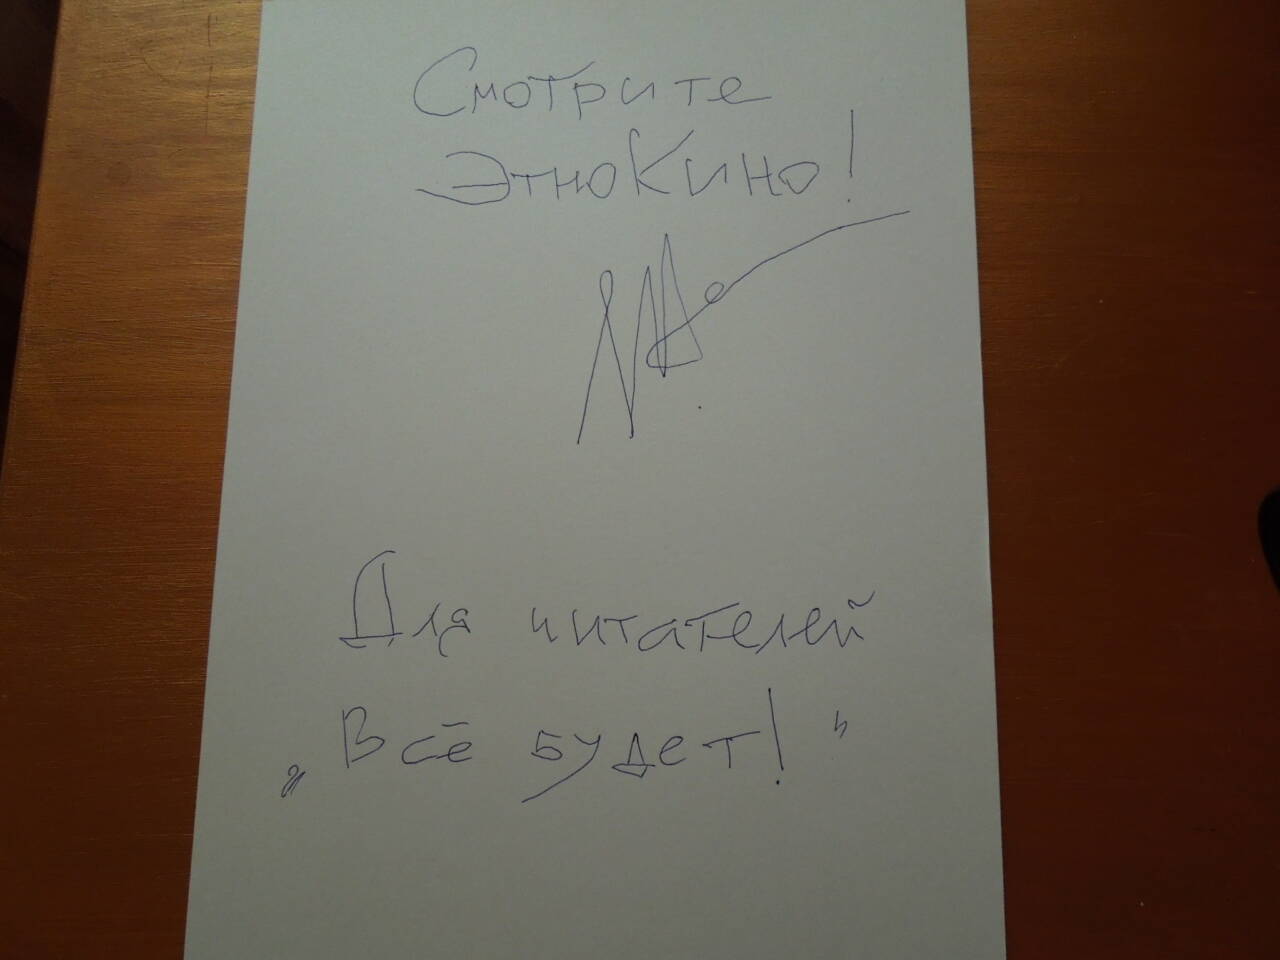 Смотрите
ЭтноКино!
Для читателей
„Всё будет!"